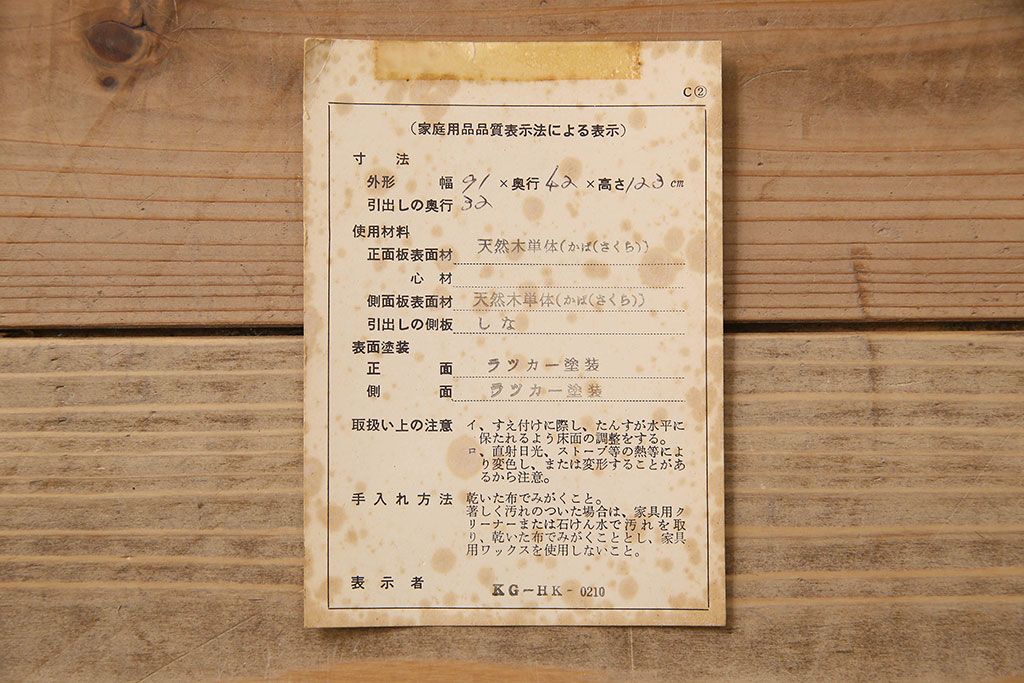 C②
(家庭用品品質表示法による表示)
寸法
外形 幅 91 ×奥行 42 ×高さ 123 cm
引出しの奥行 32
使用材料
正面板表面材 天然木単体(かば(さくら))
心材
側面板表面材 天然木単体(かば(さくら))
引出しの側板 しな
表面塗装
正面 ラツカー塗装
側面 ラツカー塗装
取扱い上の注意 イ、すえ付けに際し、たんすが水平に
保たれるよう床面の調整をする。
ロ、直射日光、ストーブ等の熱等によ
り変色し、または変形することがあ
るから注意。
手入れ方法 乾いた布でみがくこと。
著しく汚れのついた場合は、家具用ク
リーナーまたは石けん水で汚れを取
り、乾いた布でみがくこととし、家具
用ワックスを使用しないこと。
表示者 KG－HK-0210